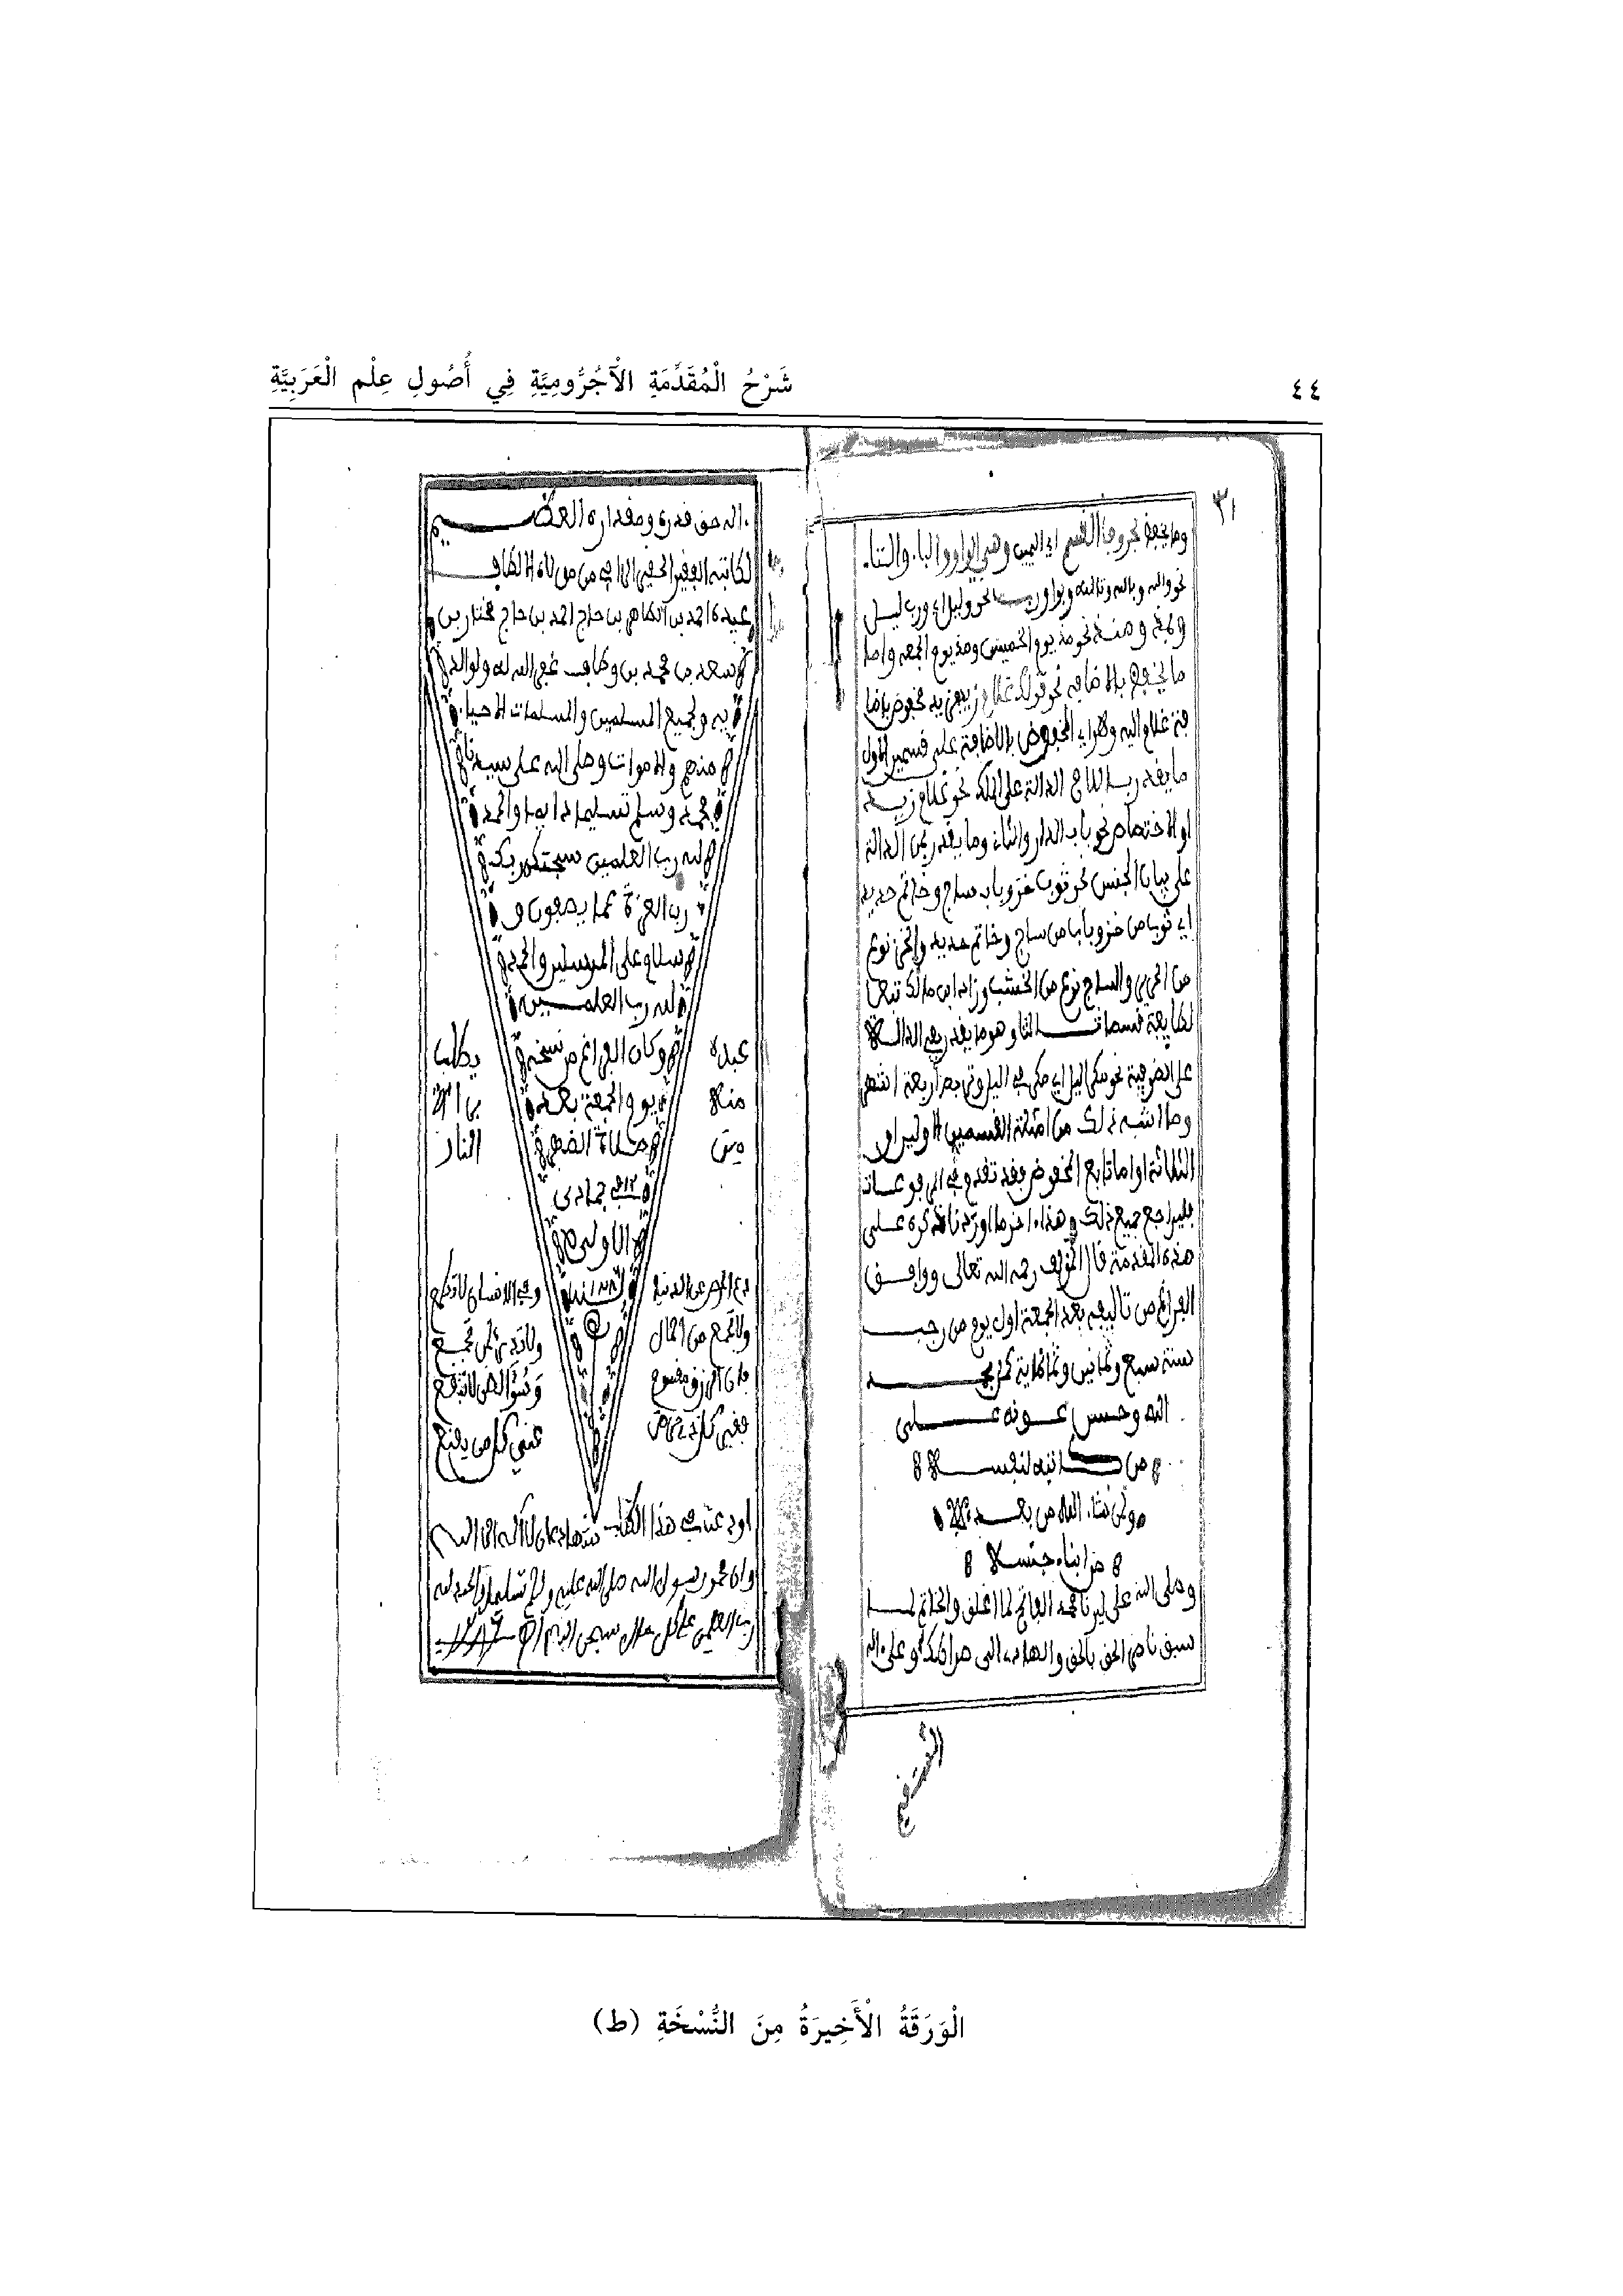 ٤٤
شَرْحُ الْمُقَدِّمَةِ الْآجُرُّومِيَّةِ فِي أُصُولِ عِلْمِ الْعَرَبِيَّةِ
٣١
وما يخفض بحروف القسم اي اليمين وهي الواو والباء والتاء
نحو والله وبالله وتالله وبواو رب نحو وليل اي ورب ليل
وبمذ ومنذ نحو مذ يوم الخميس ومنذ يوم الجمعة واما
ما يخفض بالاضافة نحو قولك غلام زيد فزيد مخفوض باضا
فة غلام اليه وهو اي المخفوض بالاضافة على قسمين الاول
ما يقدر باللام الدالة على الملك نحو غلام زيد
او الاختصاص نحو باب الدار والثاني وما يقدر بمن الدالة
على بيان الجنس نحو ثوب خز وباب ساج وخاتم حديد
اي ثوب من خز وباب من ساج وخاتم حديد والخز نوع
من الحرير والساج نوع من الخشب وزاد ابن مالك تبعا
لطايفة قسما ثالثا وهو ما يقدر بفي الدالة
على الظرفية نحو مكر اليل اي مكر في اليل وتربص أربعة اشهر
وما اشبه ذلك من امثلة القسمين الاولين او
الثلاثة او اما تابع المخفوض فقد تقدم في المرفوعات
فليراجع جميع ذلك وهذا ءاخر ما اوردنا ذكره على
هذه المقدمة قال المؤلف رحمه الله تعالى ووافق
الفراغ من تاليفه بعد الجمعة اول يوم من رجب
سنة سبع وثمانين وثمانماية بحمد
الله وحسن عونه على
من كاتبه لنفسه
ولمن شاء الله من بعده
من ابناء جنسه
وصلى الله على سيدنا محمد الفاتح لما اغلق والخاتم لما
سبق ناصر الحق بالحق والهادي الى صراطك وعلى اله
المستقيم
اله حق قدره ومقداره العظيم
لكاتبه الفقير الحقير الراجي من مولاه الالطاف
عبيده احمد بن الطاهر بن حاج احمد بن حاج مختار بن
اسعد بن محمد بن وظاف غفر الله له ولوالد
يه ولجميع المسلمين والمسلمات الاحياء
منهم والاموات وصلى الله على سيدنا
محمد وسلم تسليما دايما والحمد
لله رب العلمين سبحن ربك
رب العزة عما يصفون و
سلام على المرسلين والحمد
لله رب العلمين
وكان الفراغ من نسخه
يوم الجمعة بعد
صلاة الظهر
جمادى
الاولى
عبده
يطلب
النار
دع الحرص على الدنيا
وفي
ولا تجمع من المال
ولا تدري لمن تجمع
فان الرزق مقسوم
وسوء الظن لا ينفع
فقير كل ذي حرص
غني كل من يقنع
اودعت في هذا الكتاب شهادة ان لا اله الا الله
وان محمد رسول الله صلى الله عليه وسلم تسليما والحمد لله
رب العلمين على كل حال
الْوَرَقَةُ الْأَخِيرَةُ مِنَ النُّسْخَةِ (ط)